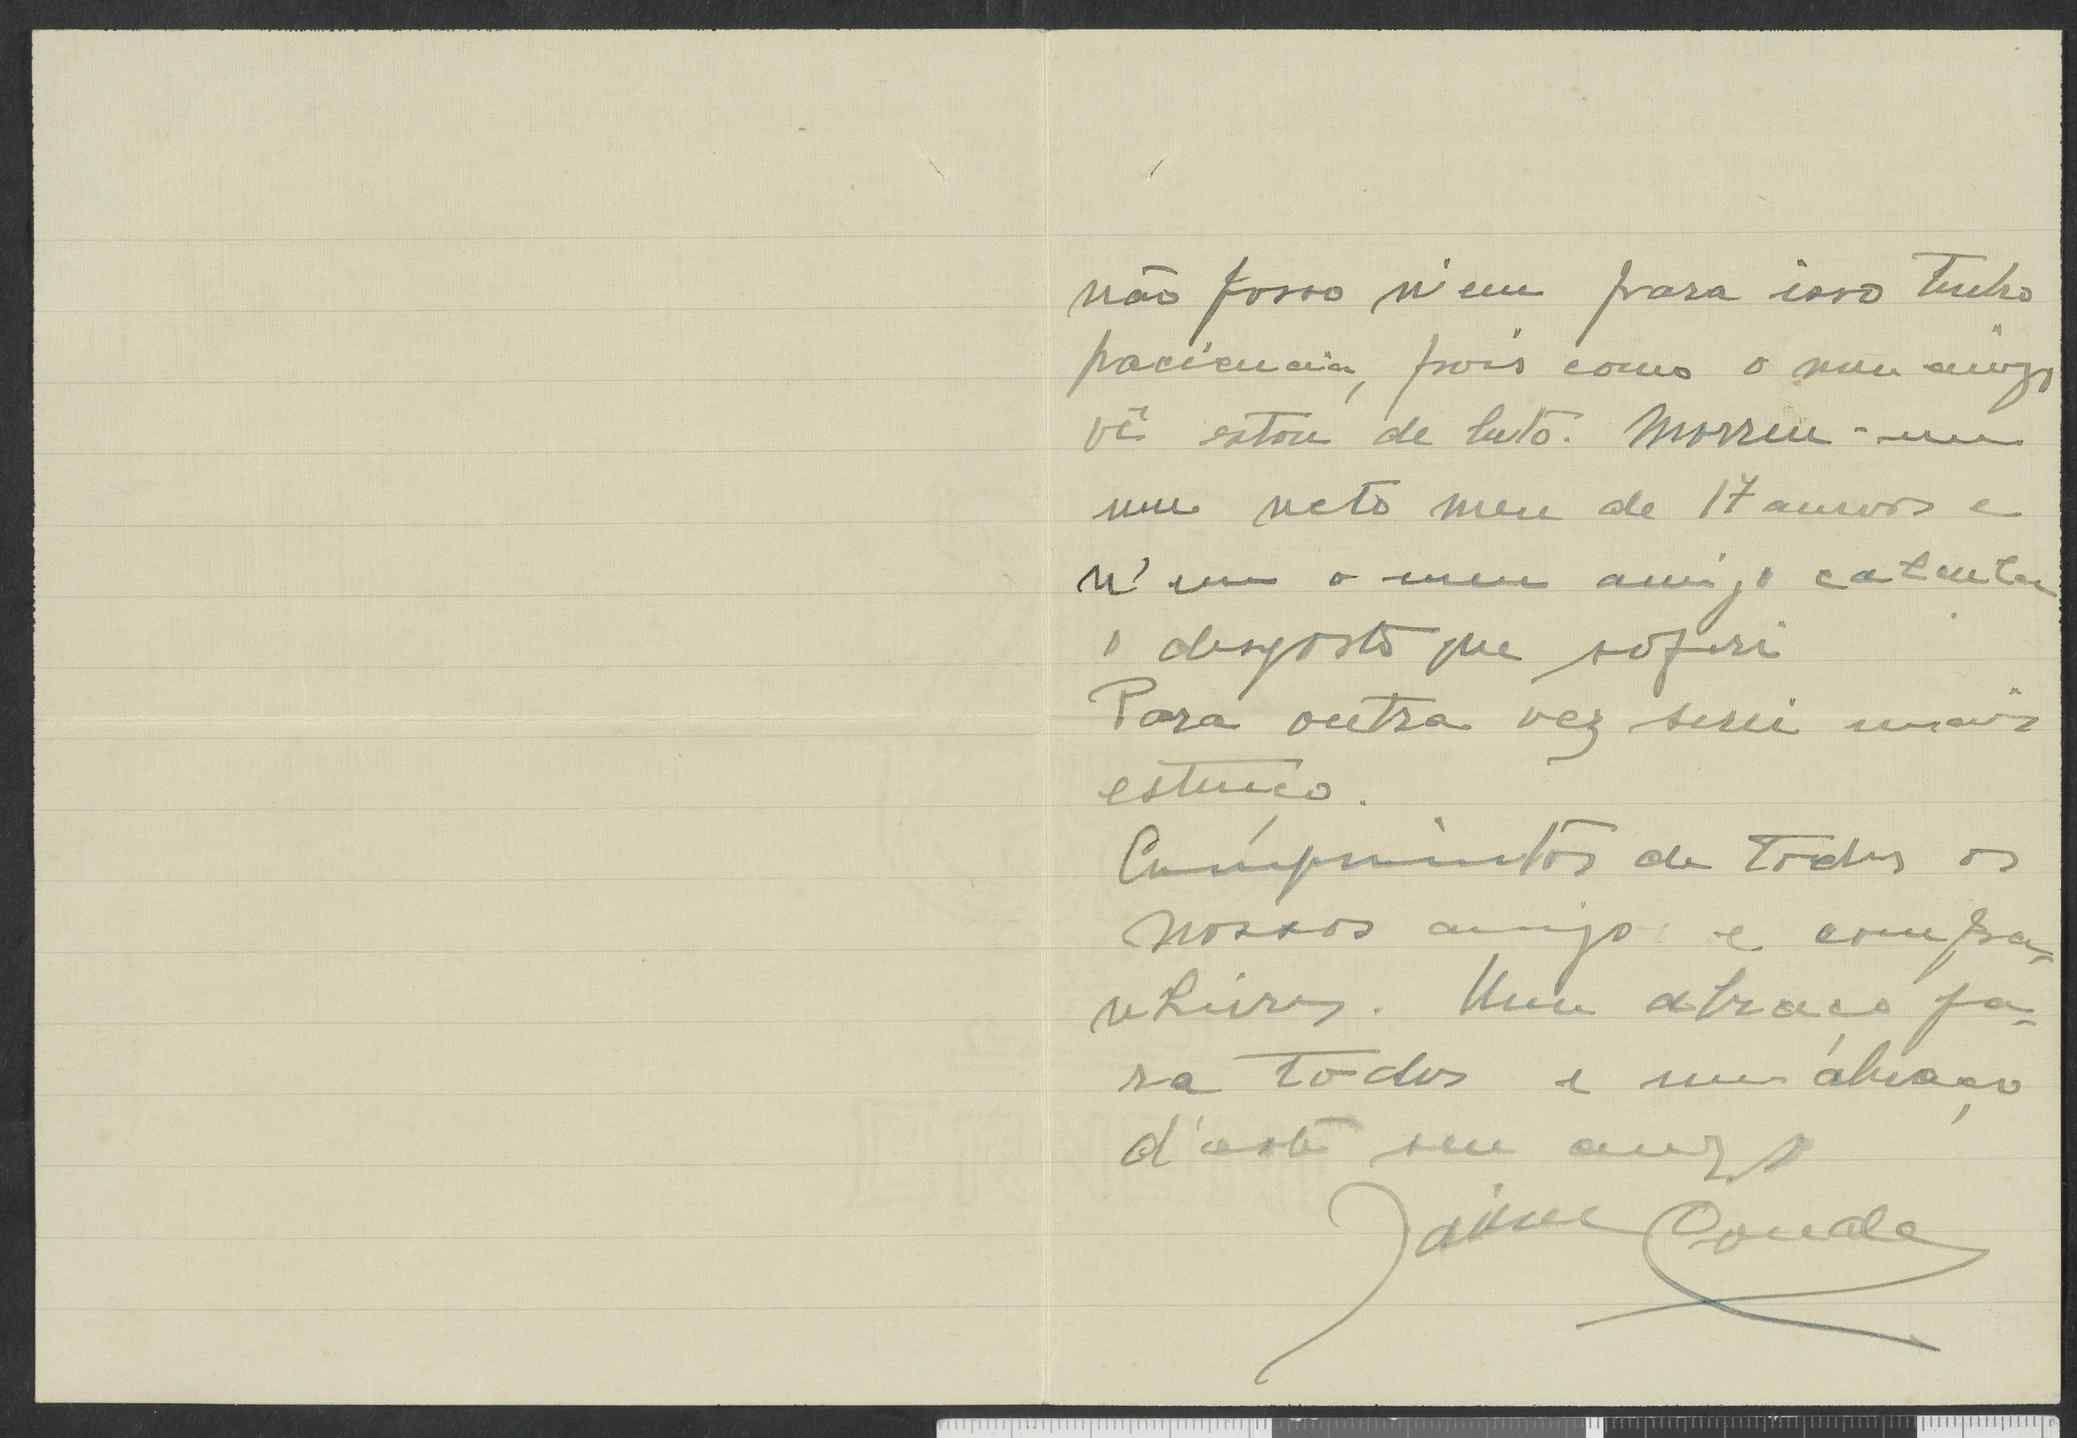 não posso n'em para isso tenho
paciencia, pois como o meu amigo
vê estou de luto. Morreu-me
um neto meu de 17 annos e
n'em o meu amigo calcula
o desgosto que sofri
Para outra vez serei mais
estenço.
Cumprimentos de todos os
nossos amigo e compa=
nheiros. Um abraço pa=
ra todos e um abraço
d'este seu amigo
Jaime Conde